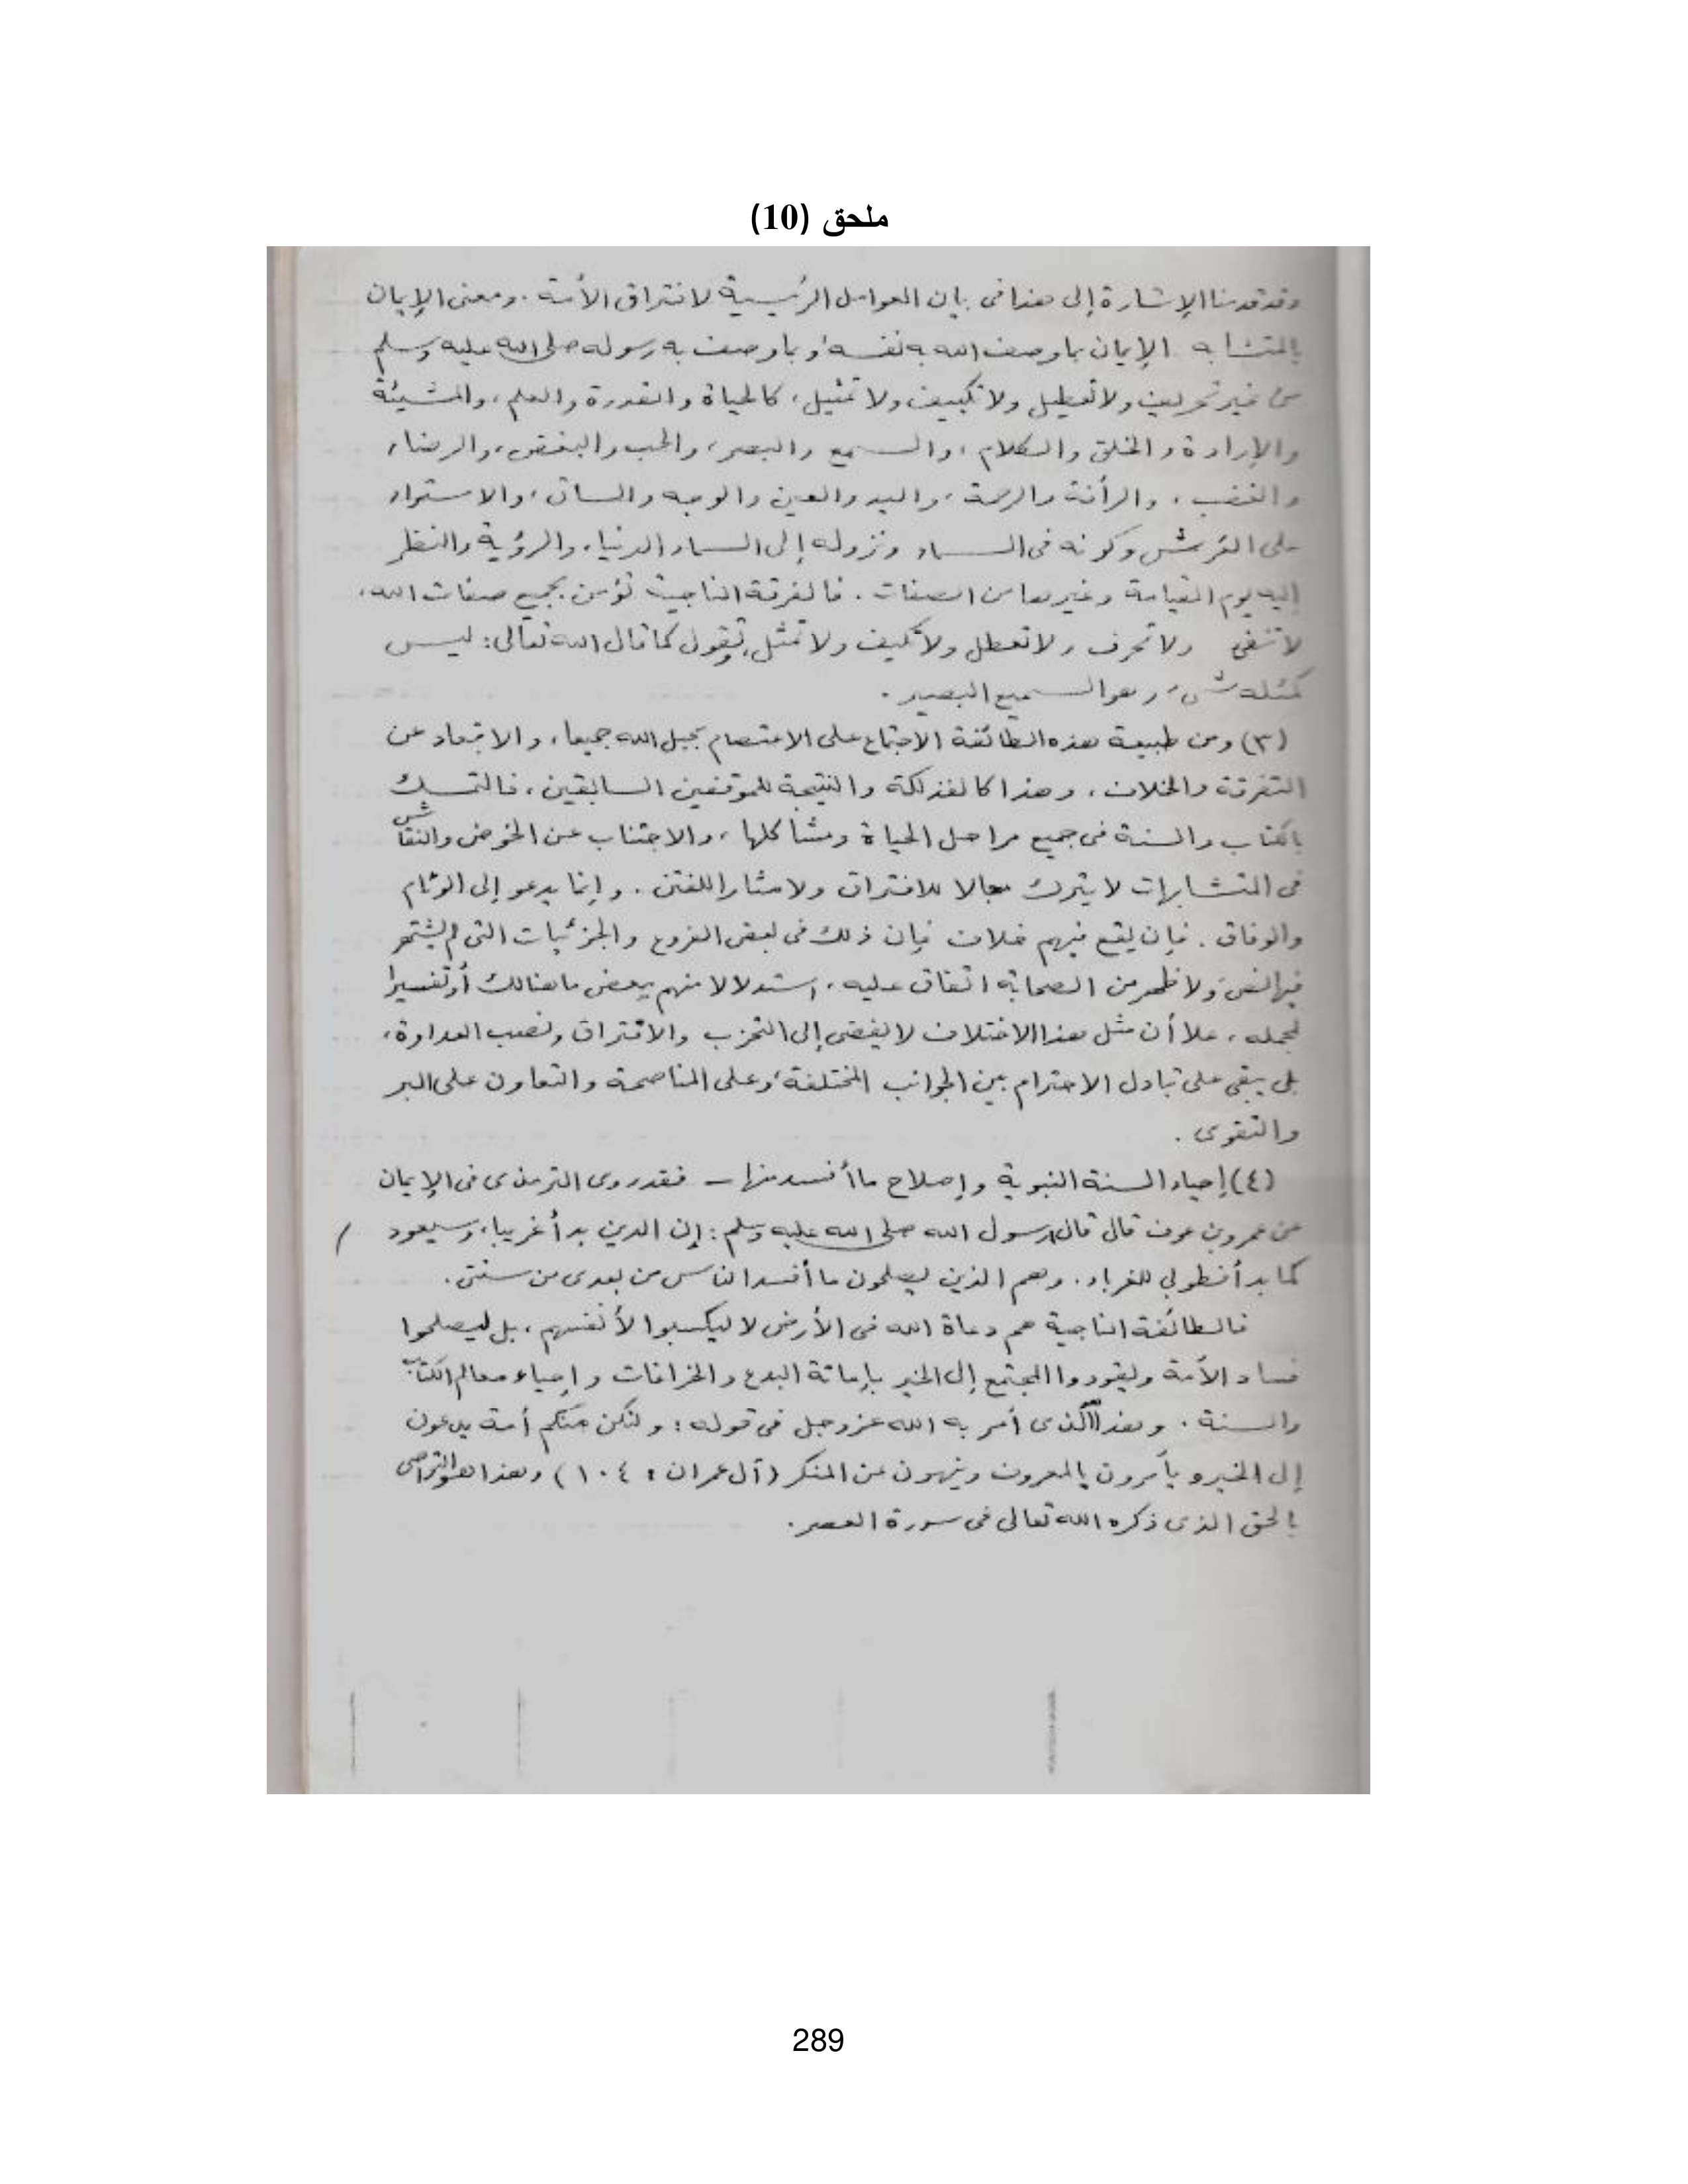 ملحق (10)
وقد قدمنا الإشارة إلى هذا فى بيان العوامل الرئيسية لافتراق الأمة. ومعنى الإيمان
بالمتشابه الإيمان بما وصف الله به نفسه، وبما وصف به رسوله صلى الله عليه وسلم
من غير تحريف ولا تعطيل ولا تكييف ولا تمثيل، كالحياة والقدرة والعلم، والمشيئة
والإرادة والخلق والكلام، والسمع والبصر، والحب والبغض، والرضاء
والغضب، والرأفة والرحمة، واليد والعين والوجه والساق، والاستواء
على العرش وكونه فى السماء ونزوله إلى السماء الدنيا، والرؤية والنظر
إليه يوم القيامة وغيرها من الصفات. فالفرقة الناجية تؤمن بجميع صفات الله،
لا تنفى ولا تحرف ولا تعطل ولا تكيف ولا تمثل، وتقول كما قال الله تعالى: ليس
كمثله شىء وهو السميع البصير.
(٣) ومن طبيعة هذه الطائفة الاجتماع على الاعتصام بحبل الله جميعا، والابتعاد عن
التفرقة والخلاف، وهذا كالفذلكة والنتيجة للموقفين السابقين، فالتمسك
بالكتاب والسنة فى جميع مراحل الحياة ومشاكلها، والاجتناب عن الخوض والنقاش
فى المتشابهات لا يترك مجالا للافتراق ولا مثارا للفتن. وإنما يدعو إلى الوئام
والوفاق. فإن يقع فيهم خلاف فإن ذلك فى بعض الفروع والجزئيات التى لم يشتهر
فيها نص، ولا ظهر من الصحابة اتفاق عليه، استدلالا منهم ببعض ما هنالك أو تفسيرا
لمجمله، علا أن مثل هذا الاختلاف لا يفضى إلى التحزب والافتراق ونصب العداوة،
بل يبقى على تبادل الاحترام بين الجوانب المختلفة، وعلى المناصحة والتعاون على البر
والتقوى.
(٤) إحياء السنة النبوية وإصلاح ما أفسد منها – فقد روى الترمذى فى الإيمان
عن عمرو بن عوف قال قال رسول الله صلى الله عليه وسلم: إن الدين بدأ غريبا، وسيعود
كما بدأ فطوبى للغرباء. وهم الذين يصلحون ما أفسد الناس من بعدى من سنتى.
فالطائفة الناجية هم دعاة الله فى الأرض لا ليكسبوا لأنفسهم، بل ليصلحوا
فساد الأمة وليقودوا المجتمع إلى الخير بإماتة البدع والخرافات وإحياء معالم الكتاب
والسنة. وهذا الذى أمر به الله عز وجل فى قوله: ولتكن منكم أمة يدعون
إلى الخير و يأمرون بالمعروف وينهون عن المنكر (آل عمران: ١٠٤) وهذا هو التواصى
بالحق الذى ذكره الله تعالى فى سورة العصر.
289